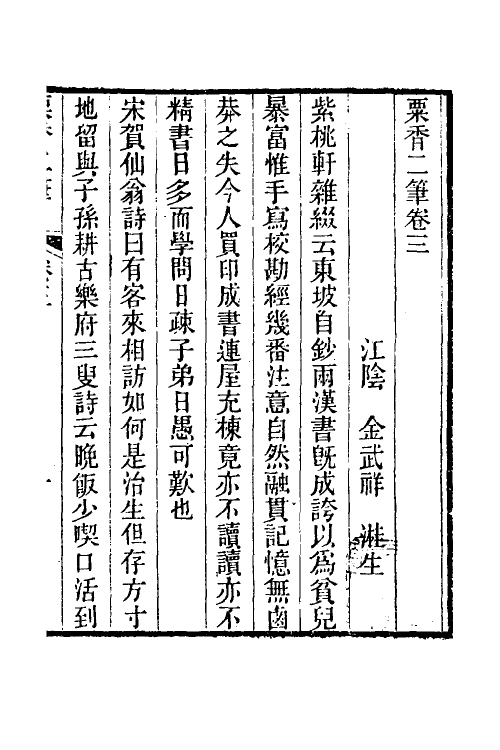 粟香二筆卷三
江陰　金武祥　溎生
紫桃軒雜綴云東坡自鈔兩漢書旣成誇以爲貧兒
暴富惟手寫校勘經幾番注意自然融貫記憶無鹵
莽之失今人買印成書連屋充棟竟亦不讀讀亦不
精書日多而學問日疎子弟日愚可歎也
宋賀仙翁詩曰有客來相訪如何是治生但存方寸
地留與子孫耕古樂府三叟詩云晚飯少喫口活到